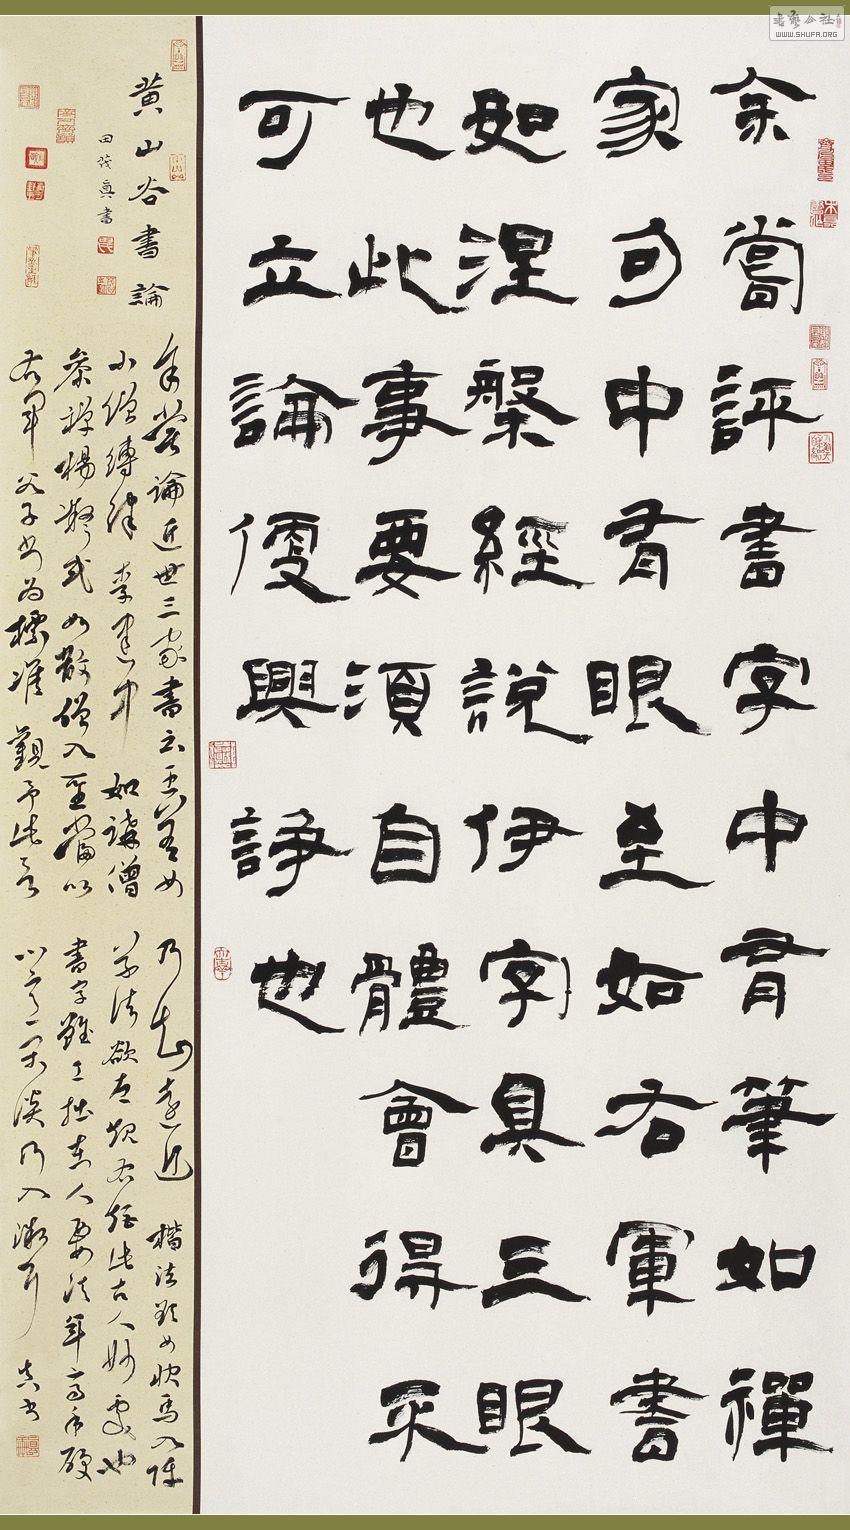 余嘗評書字中有筆如禪
家句中有眼至如右軍書
如涅槃經說伊字具三眼
也此事要須自體會得不
可立論便興諍也
黃山谷書論
余嘗論近世三家書云王著如
小僧縛律李建中如講僧
參禪楊凝式如散僧入聖當以
右軍父子書為標準觀予此言
乃知遠近 楷法欲如快馬入陣
草法欲左規右矩此古人妙處也
書字雖工拙在人要須年高手硬
心意閑淡乃入微耳
WWW.SHUFA.ORG